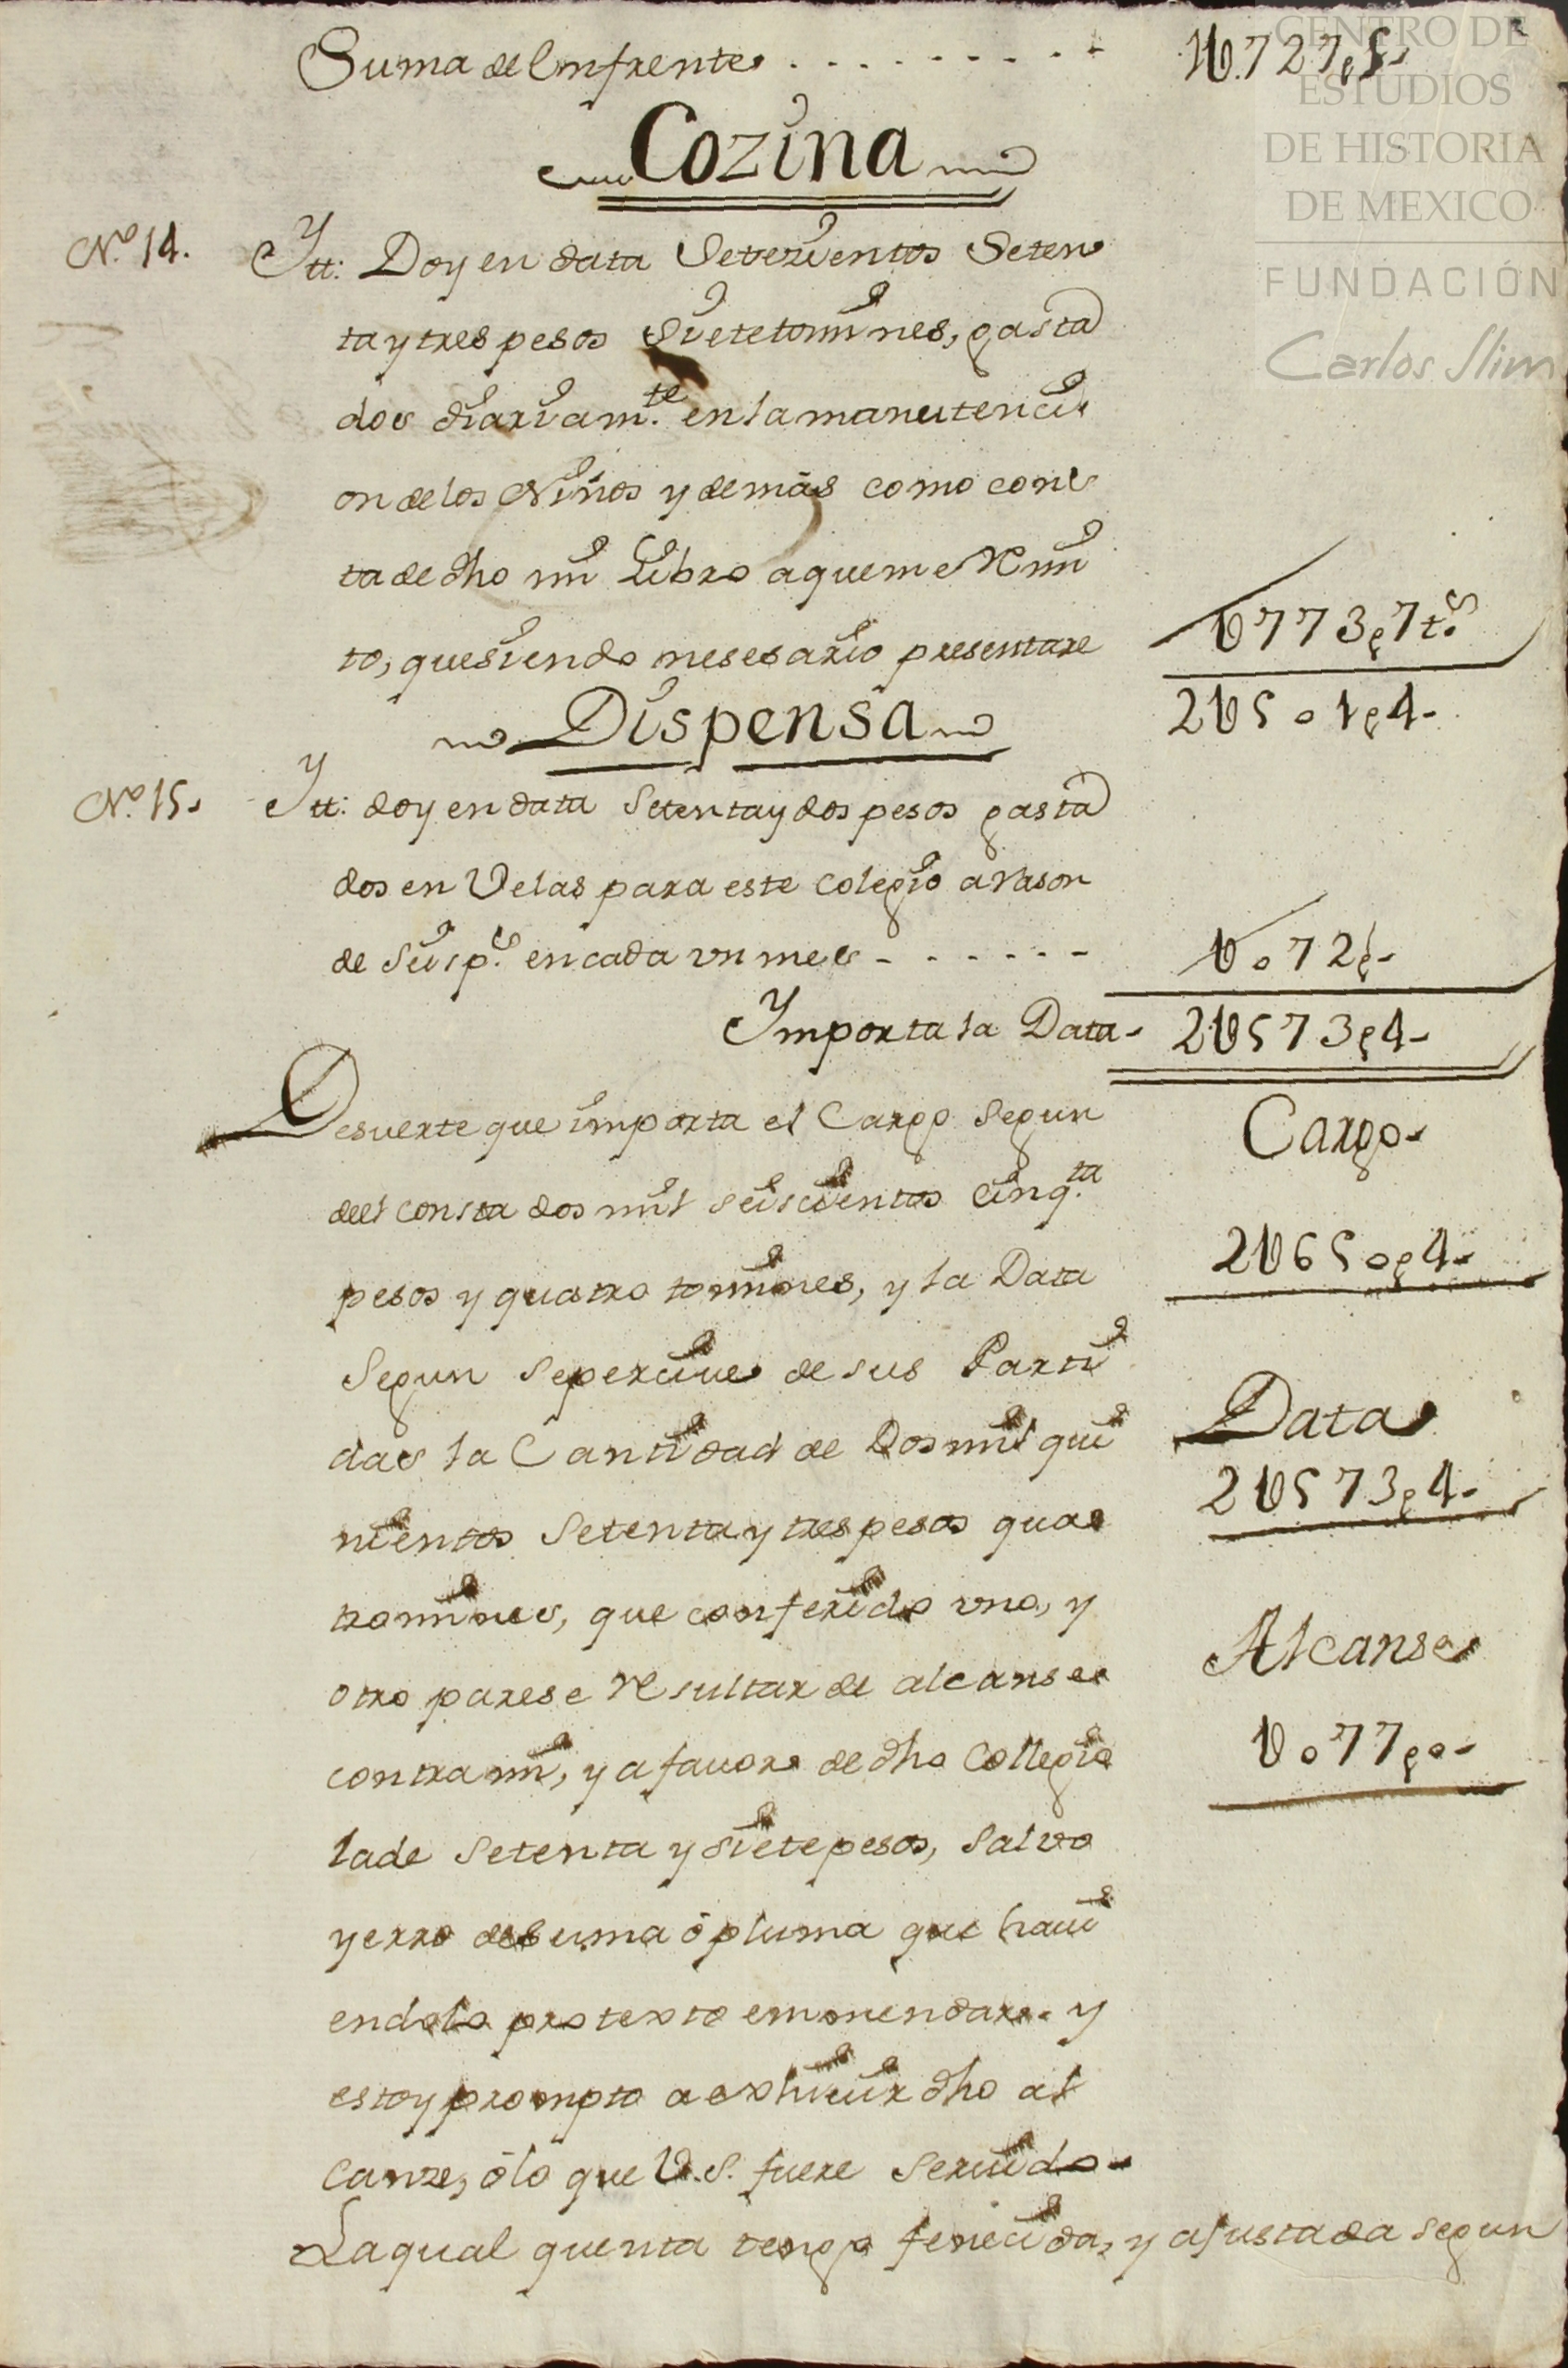 Suma del enfrente . . . . . . . . . 1U727p5-
Cozina
No. 14. Ytt: Doy en data Setezientos Seten
ta y tres pesos Siete tomines, gasta
dos diariam.te en la manutenci
on de los Niños y demás como cons
ta de dho mi Libro a que me Remi
to, que siendo nesesario presentare U773p7t.s
2U501p4-
Dispensa
No. 15. Ytt: doy en data Setenta y dos pesos gasta
dos en Velas para este colegio a Rason
de Seis p.s en cada vn mes - . . . . . - U072p-
Ymporta la Data - 2U573p4-
Desuerte que importa el Cargo Segun
del consta dos mil seiscientos cinq.ta
pesos y quatro tomines, y la Data
Segun se percive de sus Parti
das la Cantidad de Dos mil qui
nientos Setenta y tres pesos qua
tromines, que conferido vno, y
otro parese Resultar de alcanse
contra mi, y a favor de dho Collegio
la de Setenta y siete pesos, Salvo
yerro de suma ó pluma que havi
endolo protexto enmendare. y
estoy prompto a exhivir dho al
canze, ó lo que V.S. fuere servido-
La qual quenta tengo fenecida, y ajustada segun
Cargo-
2U650p4-
Data
2U573p4-
Alcanse
U077p0-
CENTRO DE
ESTUDIOS
DE HISTORIA
DE MEXICO
FUNDACIÓN
Carlos Slim